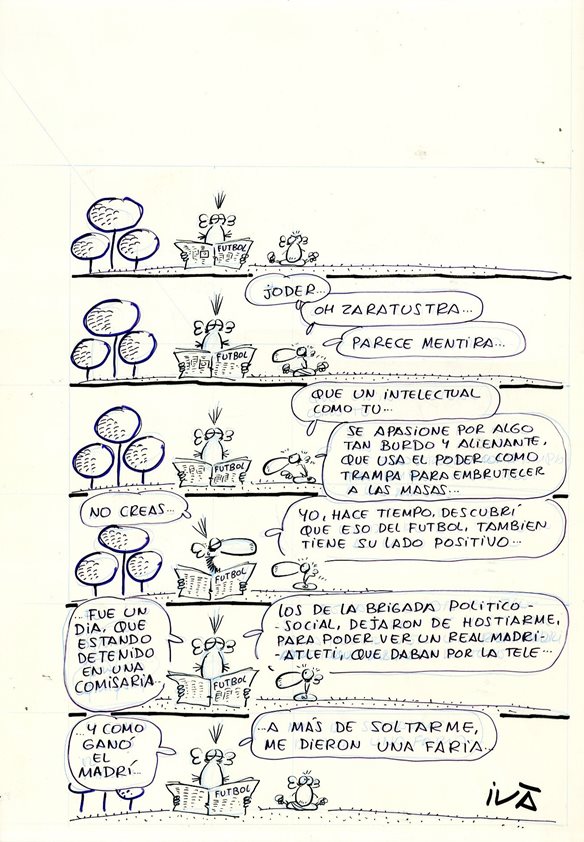 FUTBOL
JODER...
OH ZARATUSTRA...
PARECE MENTIRA...
FUTBOL
QUE UN INTELECTUAL
COMO TU...
SE APASIONE POR ALGO
TAN BURDO Y ALIENANTE,
QUE USA EL PODER COMO
TRAMPA PARA EMBRUTECER
A LAS MASAS...
FUTBOL
NO CREAS...
YO, HACE TIEMPO, DESCUBRÍ
QUE ESO DEL FUTBOL, TAMBIEN
TIENE SU LADO POSITIVO...
FUTBOL
...FUE UN
DIA, QUE
ESTANDO
DETENIDO
EN UNA
COMISARÍA...
LOS DE LA BRIGADA POLITICO-
-SOCIAL, DEJARON DE HOSTIARME,
PARA PODER VER UN REAL MADRI-
-ATLETI, QUE DABAN POR LA TELE...
FUTBOL
...Y COMO
GANÓ
EL
MADRÍ...
...A MÁS DE SOLTARME,
ME DIERON UNA FARIA...
FUTBOL
IVÀ